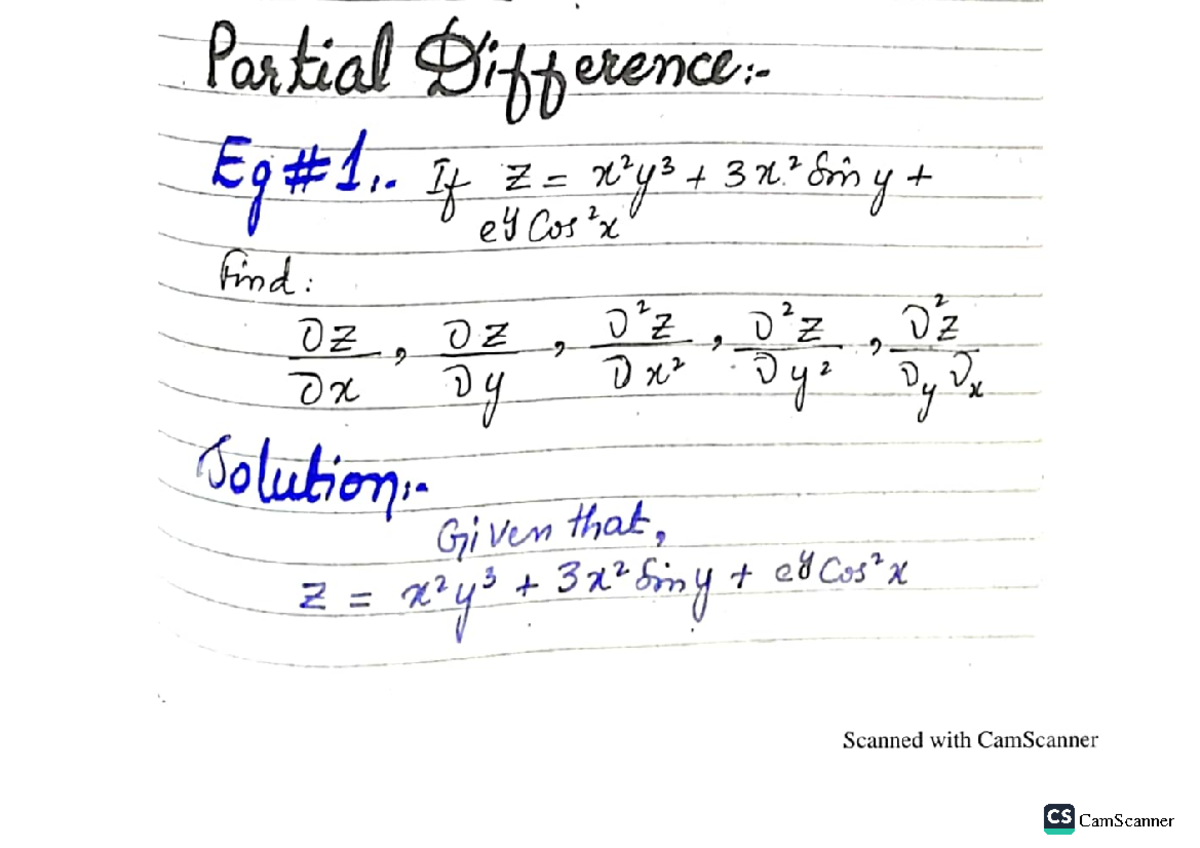 Partial Difference:-
Eg#1:- If z = x²y³ + 3x² Sin y +
eʸ Cos²x
Find:
∂z/∂x , ∂z/∂y , ∂²z/∂x² , ∂²z/∂y² , ∂²z/∂y∂x
Solution:-
Given that,
z = x²y³ + 3x² Sin y + eʸ Cos²x
Scanned with CamScanner
CS CamScanner